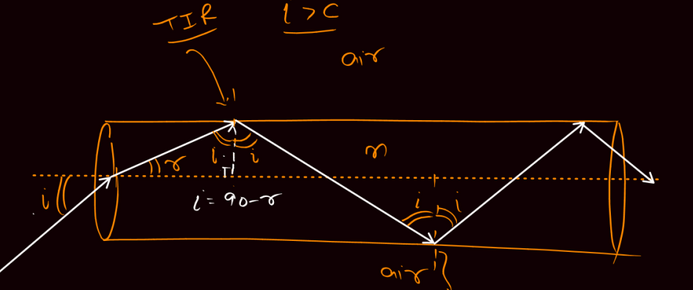 TIR i > C
air
r i i n
i
i = 90 - r
i i
air